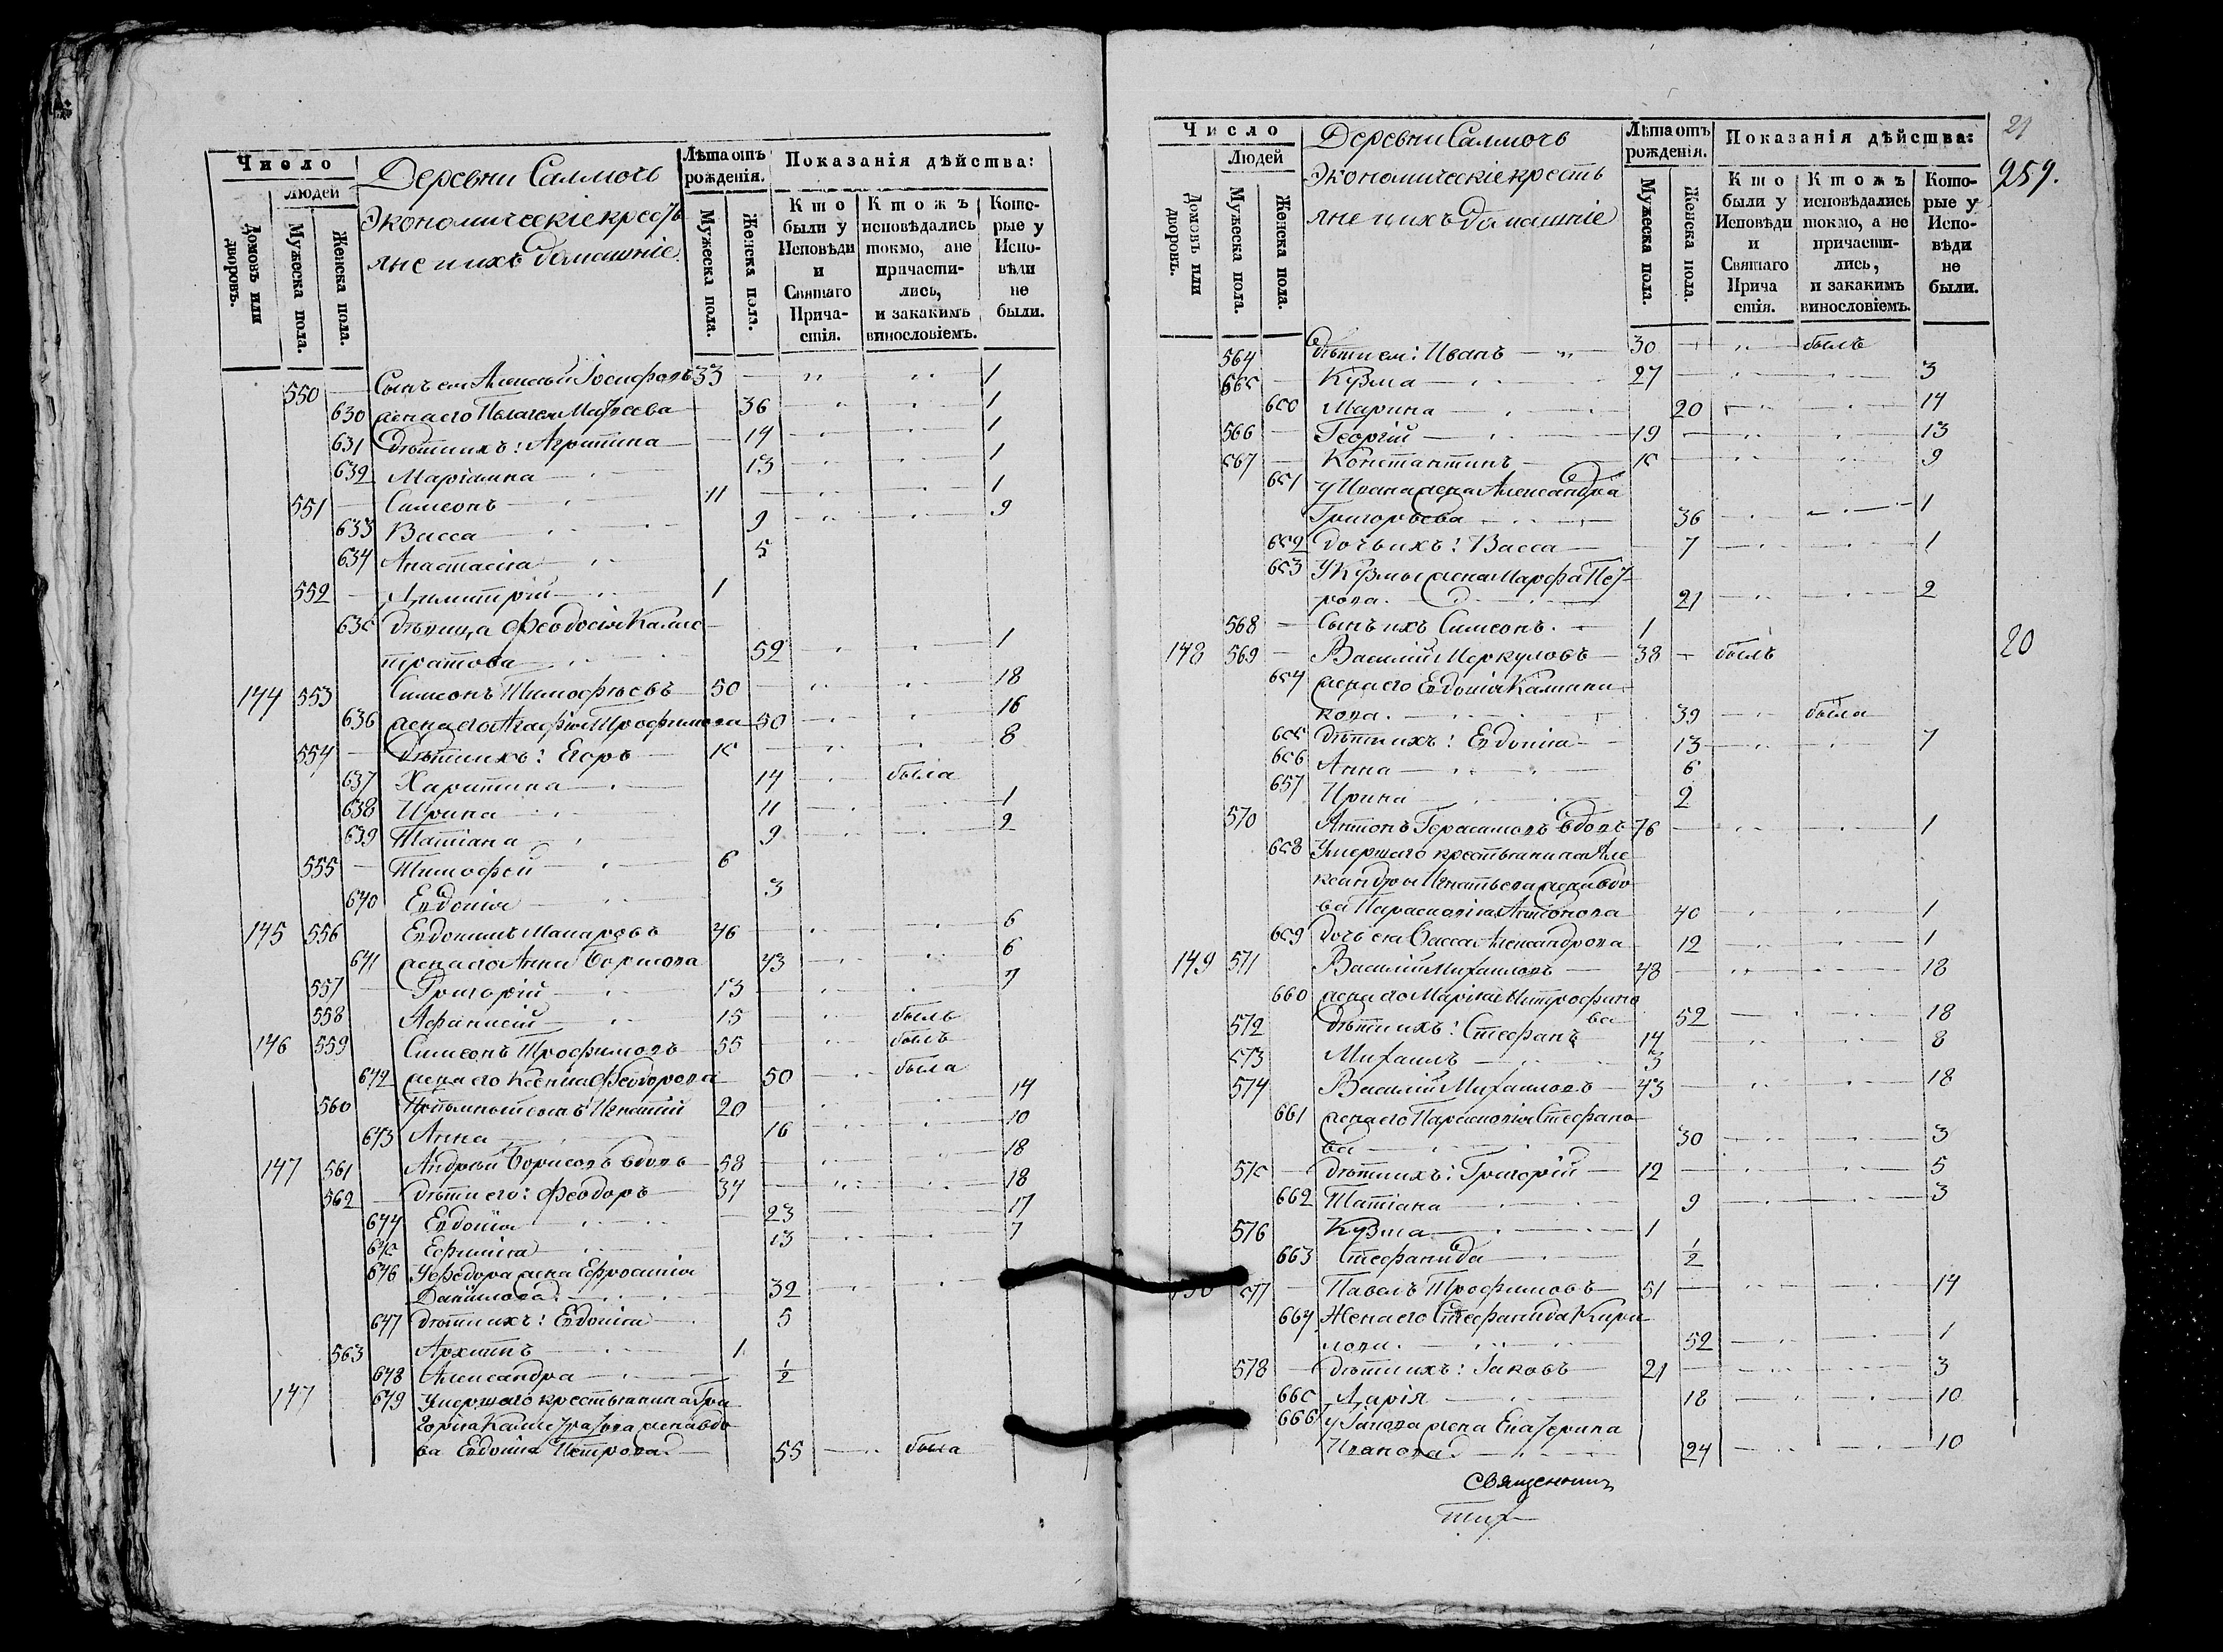 Число
Людей
Домовъ или дворовъ.
Мужеска пола.
Женска пола.
Деревни Салмочь
Экономическіе кресть
яне и ихъ домашніе
Лѣта отъ рожденія.
Мужеска пола.
Женска пола.
Показанія дѣйства:
Кто были у Исповѣди и Святаго Причастія.
Ктожъ исповѣдались токмо, а не причастились, и закакимъ винословіемъ.
Которые у Исповѣди не были.
550 Сынъ ея Алексѣй Іосифовъ 33 1
630 жена его Пелагея Матѳеева 36 1
631 Дѣти ихъ: Агрипина 14 1
632 Маріамна 13 1
551 Симеонъ 11 1
633 Васса 9 9
634 Анастасія 5
552 Димитрій 1
635 Дѣвица Феодосія Калис
тратова 52 1
144 553 Симеонъ Тимофѣевъ 50 18
636 жена его Агафія Трофимова 50 16
554 Дѣти ихъ: Егоръ 15 8
637 Харитина 14 была
638 Ирина 11 1
639 Татіана 9 2
555 Тимофей 6
640 Евдокія 3
145 556 Евдокимъ Макаровъ 46 6
641 жена его Анна Борисова 43 6
557 Григорій 13 7
558 Афанасій 15 былъ
146 559 Симеонъ Трофимовъ 55 былъ
642 жена его Ксенія Феодорова 50 была
560 Пріемный сынъ Игнатій 20 14
643 Анна 16 10
147 561 Андрей Борисовъ вдовъ 58 18
562 Дѣти его: Феодоръ 34 18
644 Евдокія 23 17
645 Ефимія 13 7
646 У Феодора жена Ефросинія
Данилова 32
647 Дѣти ихъ: Евдокія 5
563 Архипъ 1
648 Александра 1/2
147 649 Умершаго крестьянина Гри
горія Калистратова жена вдо
ва Евдокія Петрова 55 была
Число
Людей
Домовъ или дворовъ.
Мужеска пола.
Женска пола.
Деревни Салмочь
Экономическіе кресть
яне и ихъ домашніе
Лѣта отъ рожденія.
Мужеска пола.
Женска пола.
Показанія дѣйства:
Кто были у Исповѣди и Святаго Прича стія.
Ктожъ исповѣдались токмо, а не причастились, и закакимъ винословіемъ.
Которые у Исповѣди не были.
21
259.
564 Дѣти ея: Иванъ 30 былъ
565 Кузма 27 3
650 Марина 20 14
566 Георгій 19 13
567 Константинъ 15 9
651 У Ивана жена Александра
Григорьева 36 1
652 Дочь ихъ: Васса 7 1
653 У Кузмы жена Марфа Пет
рова 21 2
568 Сынъ ихъ Симеонъ 1
148 569 Василій Меркуловъ 38 былъ
20
654 жена его Евдокія Калини
кова 39 была
655 Дѣти ихъ: Евдокія 13 7
656 Анна 6
657 Ирина 2
570 Антонъ Герасимовъ вдовъ 76 1
658 Умершаго крестьянина Але
ксандра Игнатьева жена вдо
ва Параскевія Антонова 40 1
659 Дочь ея Васса Александрова 12 1
149 571 Василій Михаиловъ 48 18
660 жена его Марія Митрофано
ва 52 18
572 Дѣти ихъ: Стефанъ 14 8
573 Михаилъ 3
574 Василій Михаиловъ 43 18
661 жена его Параскевія Стефано
ва 30 3
575 Дѣти ихъ: Григорій 12 5
662 Татіана 9 3
576 Кузма 1
663 Стефанида 1/2
577 Павелъ Трофимовъ 51 14
664 Жена его Стефанида Кири
лова 52 1
578 Дѣти ихъ: Іаковъ 21 3
665 Дарія 18 10
666 У Іакова жена Екатерина
Иванова 24 10
Священник